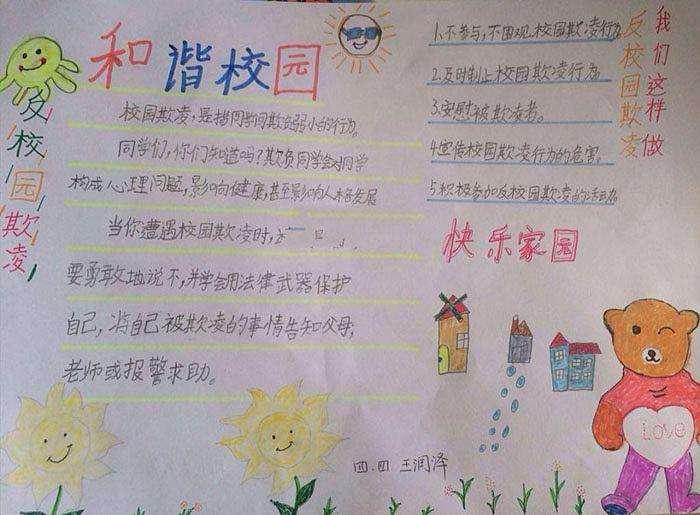 和谐校园
反校园欺凌
校园欺凌，是指同学间欺负弱小的行为。
同学们，你们知道吗？欺负同学会对同学
构成心理问题，影响健康，甚至影响人格发展
当你遭遇校园欺凌时，
要勇敢地说不，并学会用法律武器保护
自己，将自己被欺凌的事情告知父母，
老师或报警求助。
我们这样做
反校园欺凌
1.不参与，不围观校园欺凌行为
2.及时制止校园欺凌行为
3.安慰被欺凌者。
4.宣传校园欺凌行为的危害。
5.积极参加反校园欺凌的活动
快乐家园
Love
四.四 王润泽